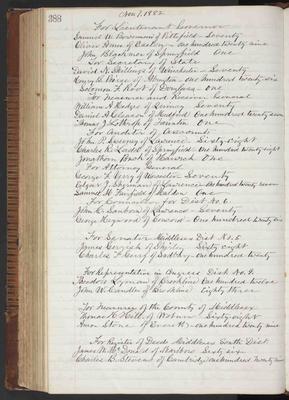 388
Nov 7, 1882
For Lieutenant Governor
Samuel W. Bowerman of Pittsfield - Seventy
Oliver Ames of Easton - one hundred twenty nine
John Blackmer of Springfield one
For Secretary of State
David N. Skillings of Winchester - Seventy
Henry B. Peirce of Abington one hundred twenty six
Solomon F. Root of Douglass - one
For Treasurer and Receiver General
William A Hodges of Quincy Seventy
Daniel A Gleason of Medford one hundred twenty seven
Thomas J. Lothrop of Taunton One
For Auditor of Accounts
John P. Sweeney of Lawrence Sixty-eight
Charles R. Ladd of Springfield one hundred twenty eight
Jonathan Buck of Harwich One
For Attorney General
George F. Verry of Worcester Seventy
Edgar J. Sherman of Lawrence one hundred twenty seven
Samuel M. Fairfield of Malden One
For Councillor for Dist No. 6
John K. Sanborn of Lawrence - Seventy
George Heywood of Concord - One hundred twenty six
For Senator Middlesex Dist No. 5
James of Shirley Sixty eight
Charles F. Gerry of Sudbury - one hundred twenty
For Representative in Congress Dist No. 9.
Theodore Lyman of Brookline One hundred twelve
John W. Candler of Brookline Eighty three
For Treasurer of the County of Middlesex
Thomas H. Hill of Woburn Sixty-eight
Amos Stone of Everett - one hundred twenty nine
For Register of Deeds Middlesex South Dist.
James W. McDonald of Marlboro Sixty six
Charles B. Stevens of Cambridge one hundred twenty nine